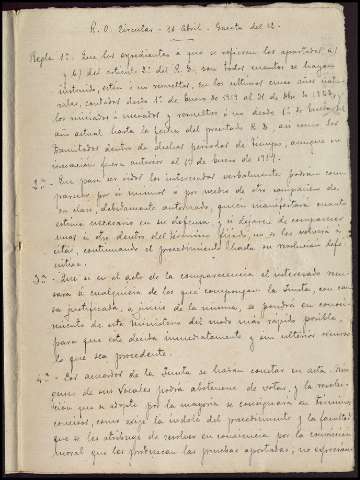 R. O. Circular - 21 Abril - Gaceta del 22 -
Regla 1ª Que los expedientes a que se refieren los apartados a)
y b) del artículo 2º del R. D., son todos cuantos se hayan
instruido, estén o no resueltos, en los últimos cinco años natu-
rales, contados desde 1º de Enero de 1919 al 31 de Dbre de 1923,
los iniciados o incoados y resueltos o no desde 1º de Enero del
año actual hasta la fecha del precitado R. D., así como los
tramitados dentro de dichos periodos de tiempo, aunque su
incoación fuera anterior al 1º de Enero de 1919.
2ª - Que para ser oidos los interesados verbalmente podrán com-
parecer por si mismos o por medio de otro compañero de
su clase, debidamente autorizado, quien manifestará cuanto
estime necesario en su defensa, y si dejaren de comparecer
unos u otro dentro del término fijado, no se les volverá a
citar, continuando el procedimiento hasta su resolución defi-
nitiva.
3ª - Que si en el acto de la comparecencia el interesado recu-
sara a cualquiera de los que componen la Junta, con cau-
sa justificada, a juicio de la misma, se pondrá en conoci-
miento de este Ministerio del modo más rápido posible,
para que este decida inmediatamente y sin ulterior recurso
lo que sea procedente.
4ª - Los acuerdos de la Junta se harán constar en acta. Nin-
guno de sus Vocales podrá abstenerse de votar, y la resolu-
ción que se adopte por la mayoría se consignará en términos
concisos, como exige la indole del procedimiento y la facultad
que se les atribuye de resolver en conciencia por la convicción
moral que les produzcan las pruebas aportadas, no expresando